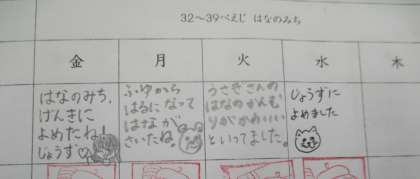 32～39ぺえじ はなのみち
金
月
火
水
木
はなのみち、
げんきに
よめたね!
じょうず♡
ふゆから
はるになって
はなが
さいたね。
うさぎさんの
はなのかんむ
りがかわいい
といってました。
じょうずに
よめました